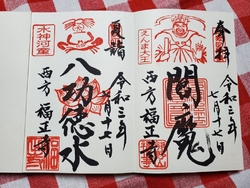 奉拝
令和三年
七月十七日
閻魔
えんま大王
西方 福正寺
夏詣
令和三年
七月十七日
八功徳水
水神河童
西方 福正寺